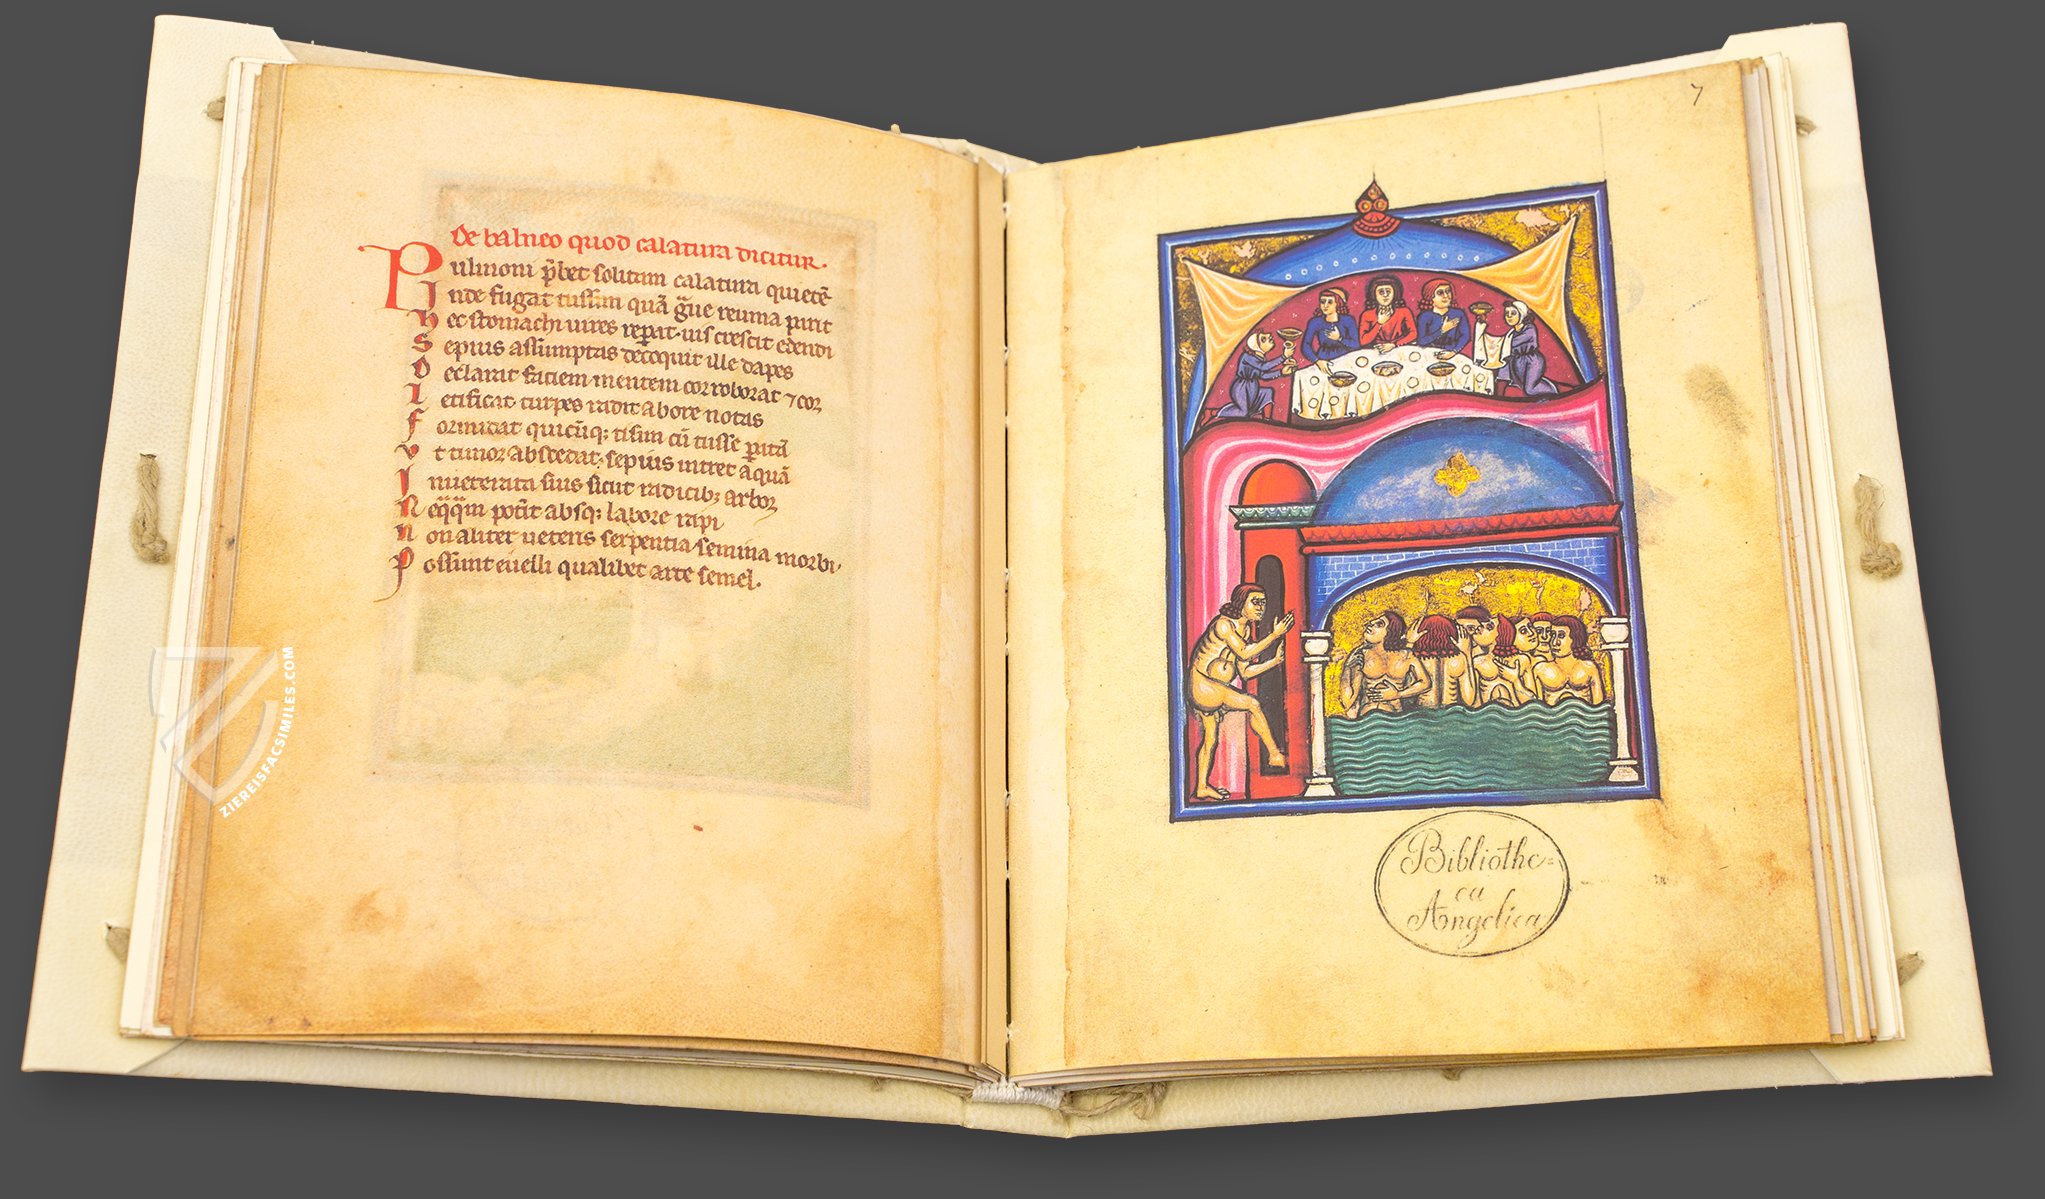 De balneo quod calatura dicitur.
Pulmoni p̄bet solitum calatura quietē
Unde fugat tussim quā ḡue reuma parit
Hec stomachi uires reparat. uis crescit edendi
Sepius assumptas decoquit ille dapes
Declarat faciem mentem corroborat ⁊ cor
Letificat. turpes radit ab ore notas
Formidat quicūq; tisim cū tusse pitā
Vt timor abscedat. sepius intret aquā
Inueterata sius sicut radicib; arbor
Neq̄q̄m potit absq; labore rapi
Non aliter ueteris serpentia semina morbi.
Possunt euelli qualibet arte semel.
7
Bibliothe=
ca
Angelica
ZIEREISFACSIMILES.COM